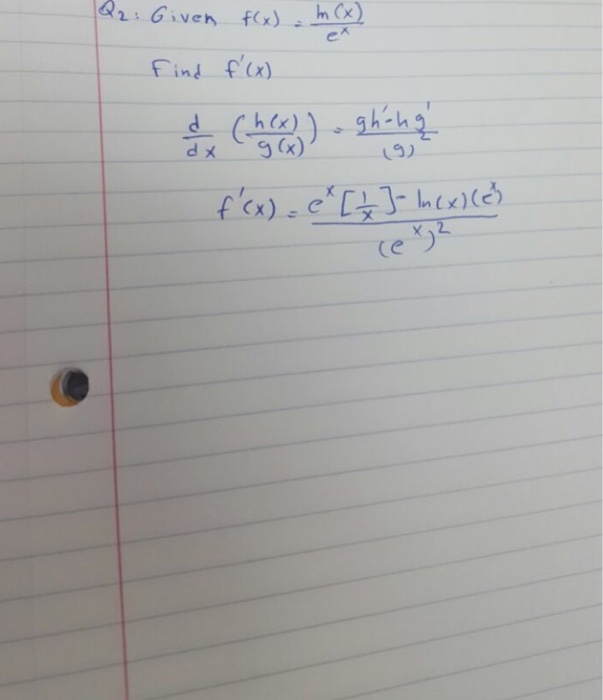 Q2: Given f(x) = ln(x)/e^x
Find f'(x)
d/dx (h(x)/g(x)) = gh'-hg'/(g)^2
f'(x) = e^x[1/x]-ln(x)(e^x)/(e^x)^2